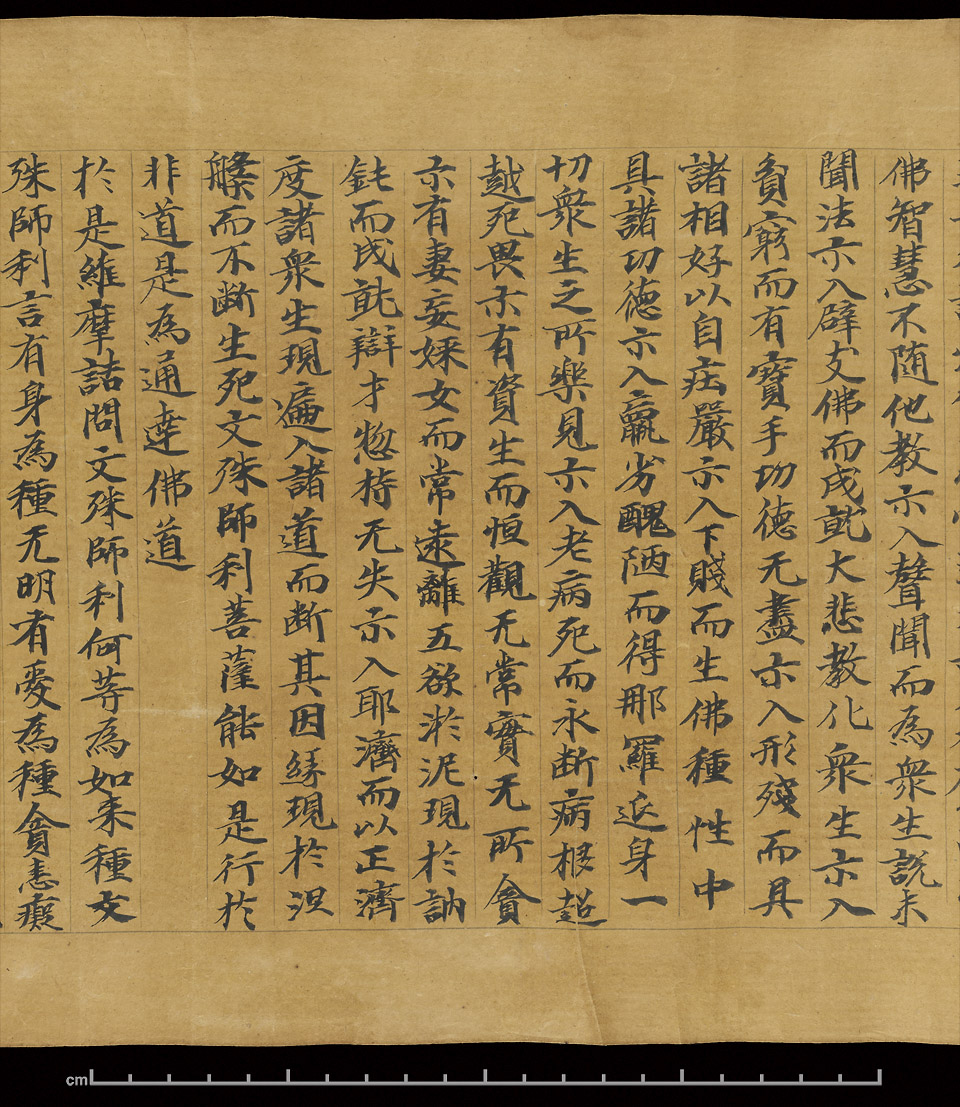 佛智慧不随他教示入聲聞而為衆生說未
聞法示入辟支佛而成就大悲教化衆生示入
貧窮而有寶手功德无盡示入形殘而具
諸相好以自庄嚴示入下賤而生佛種性中
具諸功德示入羸劣醜陋而得那羅延身一
切衆生之所樂見示入老病死而永断病根超
越死畏示有資生而恒觀无常實无所貪
示有妻妾婇女而常遠離五欲淤泥現於訥
鈍而成就辯才惣持无失示入耶濟而以正濟
度諸衆生現遍入諸道而断其因緣現於涅
槃而不断生死文殊師利菩薩能如是行於
非道是為通達佛道
於是維摩詰問文殊師利何等為如来種文
殊師利言有身為種无明有愛為種貪恚癡
cm